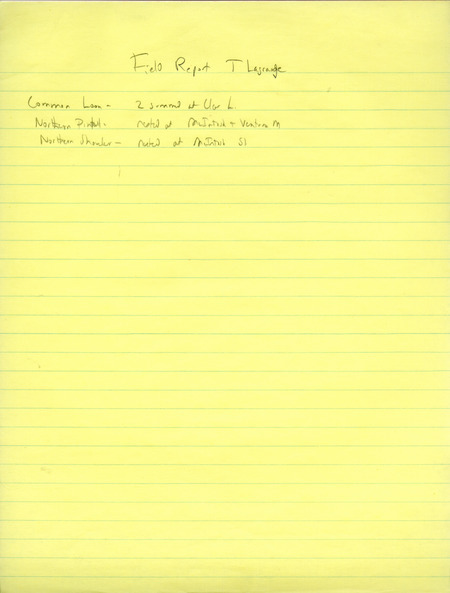 Field Report T Lagrange
Common Loon - 2 summered at Clear L.
Northern Pintail - nested at McIntosh + Ventura M
Northern Shoveler - nested at McIntosh